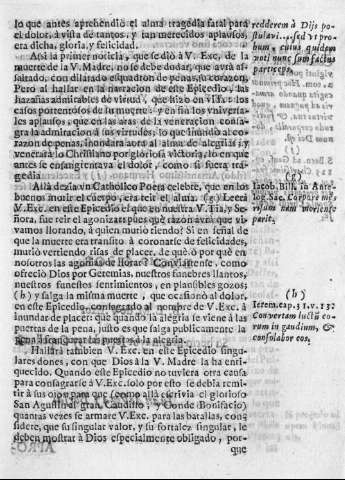 lo que antes aprehendiò el alma tragedia fatal para
el dolor, à vista de tantos, y tan merecidos aplausos,
era dicha, gloria, y felicidad.
Assi la primer noticia, que se diò à V. Exc. de la
muerte de la V. Madre, no se debe dudar, que avrà as-
saltado, con dilatado esquadron de penas, su corazon.
Pero al hallar en la narracion de este Epicedio, las
hazañas admirables de virtud, que hizo en vida: los
casos portentosos de su muerte: y en fin los universa-
les aplausos, que en las aras de la veneracion consa-
gra la admiracion à sus virtudes, lo que inundò al co-
razon de penas, inundarà aora al alma de alegrias; y
venerarà lo Christiano por gloriosa victoria, lo en que
antes se ensangrentava el dolor, como si fuera tra-
gedia.
Allà dezia un Catholico Poeta celebre, que en los
buenos morir el cuerpo, era reir el alma. (g) Leerà
V. Exc. en este Epicedio el que en nuestra V. Tia, y Se-
ñora, fue reir el agonizar: pues què razon avrà que vi-
vamos llorando, à quien muriò riendo? Si en señal de
que la muerte era transito à coronarse de felicidades,
muriò vertiendo risas de placer, de què, ò por què en
nosotros las agonias de llorar? Conviertanse, como
ofreciò Dios por Geremias, nuestros funebres llantos,
nuestros funestos sentimientos, en plausibles gozos;
(h) y salga la misma muerte, que ocasionò al dolor,
en este Epicedio, consagrado al nombre de V. Exc. à
inundar de placer: que quando la alegria se viene à las
puertas de la pena, justo es que salga publicamente la
pena à
Hallarà tambien V. Exc. en este Epicedio singu-
lares dones, con que Dios à la V. Madre la ha enri-
quecido. Quando este Epicedio no tuviera otra causa
para consagrarse à V. Exc. solo por esto se debia remi-
tir à sus ojos: para que (como allà escrivia el glorioso
San Agustin al gran Caudillo, y Conde Bonifacio)
quantas vezes se armare V. Exc. para las batallas, con-
sidere, que su singular valor, y su fortaleza singular, le
deben mostrar à Dios especialmente obligado, por-
que
redderem à Dijs po-
stulavi... sed
bum, cuius quidem
nunc sum factus
particeps.
(g)
Iacob. Bill. in Anto-
log. Sac.
nam moriente
parit.
(h)
Ierem. cap. 31. v. 13.
Convertam luctũ eo-
rum in gaudium, &
consolabor eos.